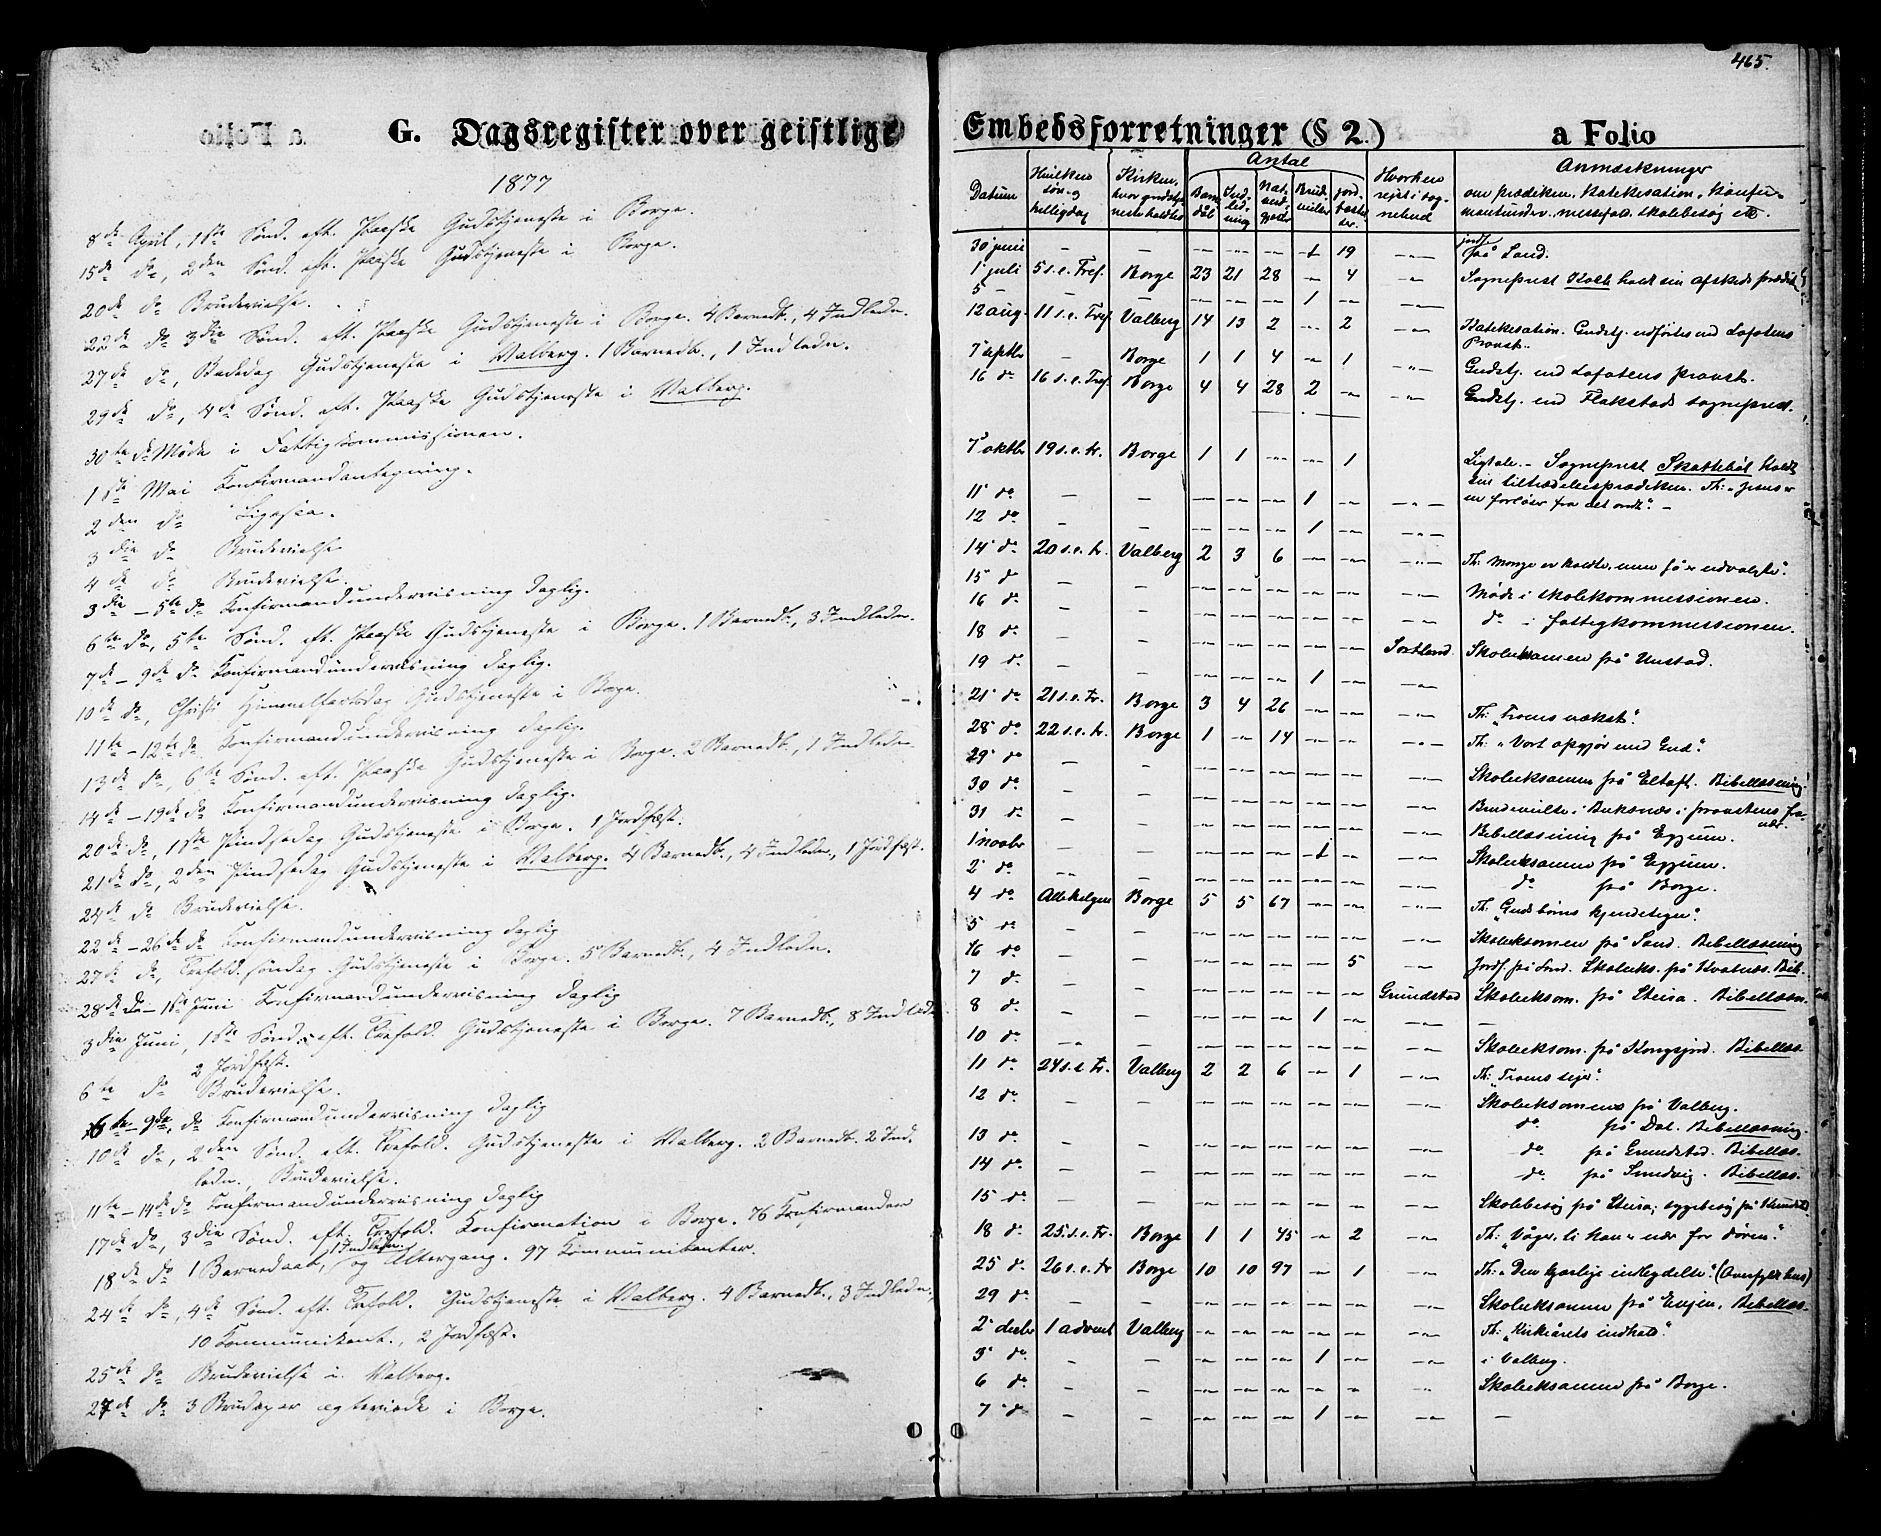 465.
G. Dagsregister over geistlige Embedsforretninger (§ 2.) a Folio
1877
8de April, 1ste Sønd. eft. Paaske Gudstjeneste i Borge.
15de do, 2den Sønd. eft. Paaske Gudstjeneste i Borge.
20de do Brudevielse.
22de do 3die Sønd. eft. Paaske Gudstjeneste i Borge. 4 Barnedb., 4 Indledn.
27de do, Bededag Gudstjeneste i Valberg. 1 Barnedb., 1 Indledn.
29de do, 4de Sønd. eft. Paaske Gudstjeneste i Valberg.
30te do Møde i Fattigkommissionen.
1ste Mai Konfirmandantegning.
2den do
3die do Brudevielse
4de do Brudevielse.
3die – 5te do Konfirmandundervisning daglig.
6te do, 5te Sønd. eft. Paaske Gudstjeneste i Borge. 1 Barnedb., 3 Indledn.
7de – 9de do Konfirmandundervisning daglig.
10de do, Christi Himmelfartsdag Gudstjeneste i Borge.
11te – 12te do Konfirmandundervisning daglig.
13de do, 6te Sønd. eft. Paaske Gudstjeneste i Borge. 2 Barnedb., 1 Indledn.
14de – 19de do Konfirmandundervisning daglig.
20de do, 1ste Pindsedag Gudstjeneste i Borge. 1 Jordfæst.
21de do, 2den Pindsedag Gudstjeneste i Valberg. 4 Barnedb., 4 Indledn., 1 Jordfæst.
24de do Brudevielse.
22de – 26de do Konfirmandundervisning daglig
27de do, Trefold. søndag Gudstjeneste i Borge. 5 Barnedb., 4 Indledn.
28de do – 1ste Juni Konfirmandundervisning daglig
3die Juni, 1ste Sønd. eft. Trefold. Gudstjeneste i Borge. 7 Barnedb., 8 Indledn.
2 Jordfæst.
6te do Brudevielse.
6te – 9de do Konfirmandundervisning daglig
10de do, 2den Sønd. eft. Trefold. Gudstjeneste i Valberg. 2 Barnedb. 2 Ind-
ledn., Brudevielse.
11te – 14de do Konfirmandundervisning daglig
17de do, 3die Sønd. eft. Trefold. Konfirmation i Borge. 76 Konfirmander
18de do 1 Barnedaab, 1 Indledn. og Altergang. 97 Kommunikanter.
24de do, 4de Sønd. eft. Trefold. Gudstjeneste i Valberg. 4 Barnedb., 3 Indledn.,
10 Kommunikant., 2 Jordfæst.
25de do Brudevielse i Valberg.
27de do 3 Brudepar ægteviede i Borge.
Antal
Datum | Hvilken søn- og helligdag | Kirken, hvor gudstjenesten holdtes | Barnedåb | Indledning | Nat. | Brudevielse | Jordfæstelser | Hvorhen rejst i sognebud | Anmærkninger om prædiken, katekesation, konfirmantunder. messefald. skolebesøg etc.
30 juni – – – – – 1 19 – jordf. på Sand.
1 juli 5 s. e. Tref. Borge 23 21 28 – 4 – Sogneprest Kolb holdt sin afskedsprædik
5 – – – – – – 1 – –
12 aug. 11 s. e. Tref. Valberg 14 13 2 – 2 – Katekesation. Gudstj. udførtes ved Lofotens Provst.
7 septbr – Borge 1 1 4 – 1 – Gudstj. ved Lofotens provst.
16 do 16 s. e. Tref. Borge 4 4 28 2 – – Gudstj. ved Flakstads sogneprest.
7 oktbr 19 s. e. tr. Borge 1 1 – – 1 Ligtale. – Sogneprest Skattebøl holdt
sin tiltrædelsesprædiken. Th: „Jesus er
en forløser fra det onde“. –
11 do – – – – – 1 – –
12 do – – – – – 1 – –
14 do 20 s. e. tr. Valberg 2 3 6 – – – Th: Mange er kaldte, men få er udvalgte“.
15 do – – – – – – – – Møde i skolekommissionen.
16 do – – – – – – – – do i fattigkommissionen.
18 do – – – – – – – Sortland Skoleeksamen på Unstad.
19 do – – – – – 1 – –
21 do 21 s. e. tr. Borge 3 4 26 – – – Th: „Troens vækst“.
28 do 22 s. e. tr. Borge 1 – 14 – – – Th: „Vort opgjør med Gud“.
29 do – – – – – – – – Skoleeksamen på Eltoft. Bibellæsning.
30 do – – – – – – – – Brudevielse i Buksnæs i provstens fra-
vær.
31 do – – – – – – – – Bibellæsning på Eggum.
1 novbr – – – – – 1 – – Skoleeksamen på Eggum.
2 do – – – – – – – – do på Borge.
4 do Allehelgen Borge 5 5 67 – – – Th: „Guds børns kjendetegn“.
5 do – – – – – – – – Skoleeksamen på Sand. Bibellæsning
6 do – – – – – – 5 – Jordf. på Sand. Skoleeks. på Kvalnæs. Bib.
7 do – – – – – – – Grundstad Skoleeksam. på Steira. Bibellæsn.
8 do – – – – – 1 – – –
10 do – – – – – – – – Skoleeksam. på Kongsjord. Bibellæs.
11 do 24 s. e. Tr. Valberg 2 2 6 – 1 – Th: „Troens sejer“.
12 do – – – – – – – – Skoleeksamen på Valberg.
do på Dal. Bibellæsning.
13 do – – – – – – – – do på Grundstad. Bibellæs.
14 do – – – – – – – – do på Smedvig. Bibellæs.
15 do – – – – – – – – Skolebesøg på Steira; sygebesøg på
18 do 25. s. e. Tr. Borge 1 1 45 – 2 – Th: „Våger, ti han er nær for døren“.
25 do 26 s. e. tr Borge 10 10 97 – 1 – Th: „Den kjærlige indbydelse“. (Overfyldt hus)
29 do – – – – – – – – Skoleeksamen på Engen. Bibellæs.
2 decbr 1 advent Valberg – – – – – – Th: „Kirkeårets indhold“.
3 do – – – – – 1 – – i Valberg.
6 do – – – – – – – – Skoleeksamen på Borge.
7 do – – – – – 1 – – –